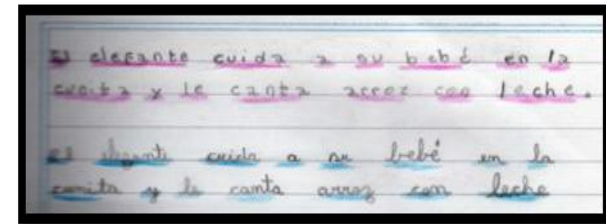 El elefante cuida a su bebé en la
cunita y le canta arroz con leche.
el elefante cuida a su bebé en la
cunita y le canta arroz con leche